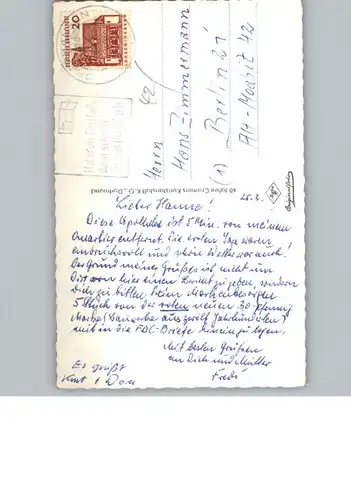 DEUTSCHE BUNDESPOST
20
42
Herrn
Hans Zimmermann
(1) Berlin 21
Alt-Moabit 42
60 Jahre Cramers Kunstanstalt K.G., Dortmund
25.3.
Lieber Hanne!
Diese Apotheke ist 5 Min. von meinem
Quartier entfernt. Die ersten Tage waren
eindrucksvoll und schön Wetter war auch.
Der Grund meines Grußes ist nicht nur
Dir von hier einen zu geben, sondern
Dich zu bitten beim Markenbesorgen
5 Stück von der roten neuen 30 Pfennig
Marke (Bauwerke aus zwölf Jahrhunderten)
mit in die FDC-Briefe hineinzulegen.
Mit besten Grüßen
an Dich und Mutter
Fredi
Es grüßt
Kurt